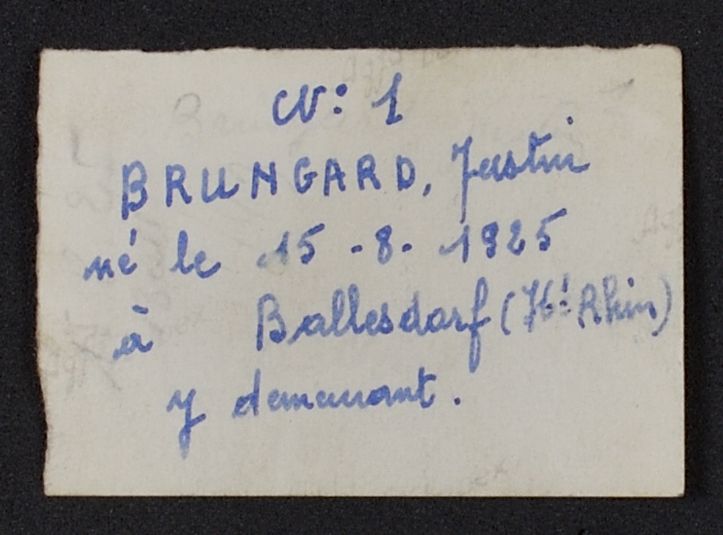 CV: 1
BRUNGARD, Justin
né le 15-8-1925
à Ballesdorf (Ht Rhin)
y demeurant.